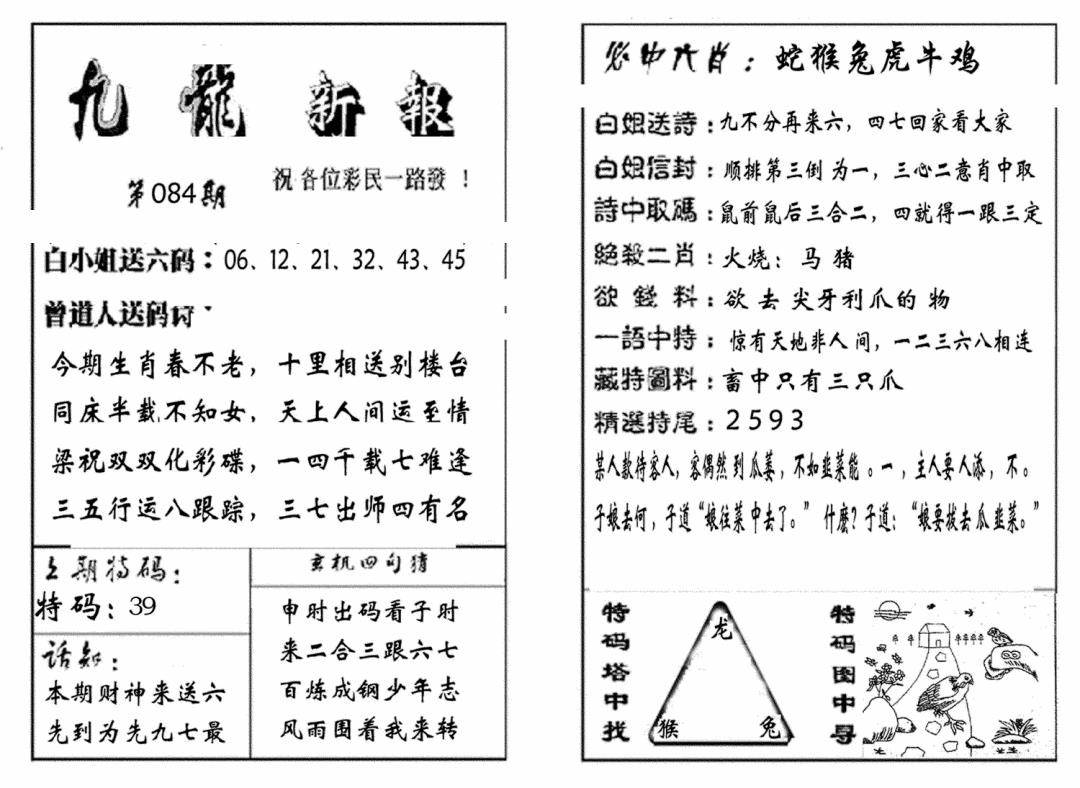 九龍新報
第084期
祝各位彩民一路發！
白小姐送六码：06、12、21、32、43、45
曾道人送码诗
今期生肖春不老，十里相送别楼台
同床半载不知女，天上人间运至情
梁祝双双化彩碟，一四千载七难逢
三五行运八跟踪，三七出师四有名
上期特码：
特码：39
话知：
本期财神来送六
先到为先九七最
玄机四句猜
申时出码看子时
来二合三跟六七
百炼成钢少年志
风雨围着我来转
必中六肖：蛇猴兔虎牛鸡
白姐送詩：九不分再来六，四七回家看大家
白姐信封：顺排第三倒为一，三心二意肖中取
詩中取碼：鼠前鼠后三合二，四就得一跟三定
絕殺二肖：火烧：马猪
欲錢料：欲去尖牙利爪的物
一語中特：惊有天地非人间，一二三六八相连
藏特圖料：畜中只有三只爪
精選特尾：2593
某人款待客人，客偶然到瓜蒌，不如韭菜能。一，主人要人添，不。
子娘去何，子道“娘往菜中去了。”什麽？子道：“娘要拔去瓜韭菜。”
特码塔中找
龙
猴
兔
特码图中寻